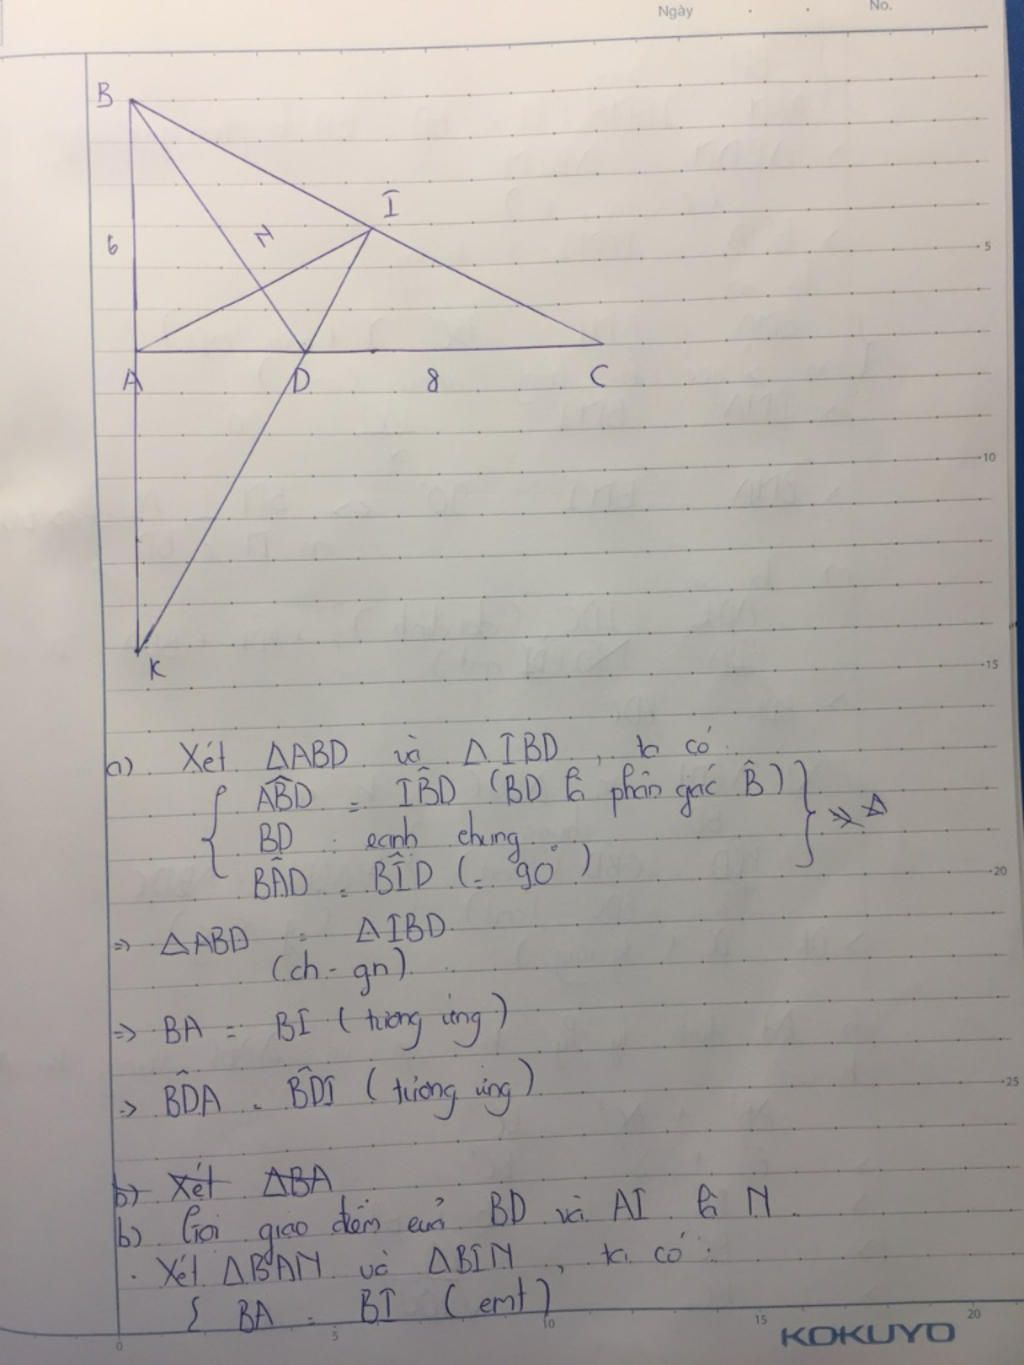 Ngày . .
No.
B
I
6
N
5
A
D
8
C
10
K
15
a) Xét ΔABD và ΔIBD, ta có:
{ ABD̂ = IBD̂ (BD là phân giác B̂) }
BD : cạnh chung
BÂD = BÎD (= 90°)
20
=> ΔABD = ΔIBD
(ch - gn)
=> BA = BI (tương ứng)
=> BD̂A = BD̂I (tương ứng)
25
b) Xét ΔBA
b) Gọi giao điểm của BD và AI là N.
. Xét ΔBAN và ΔBIN, ta có:
{ BA = BI (cmt)
0 5 10 15 20
KOKUYO